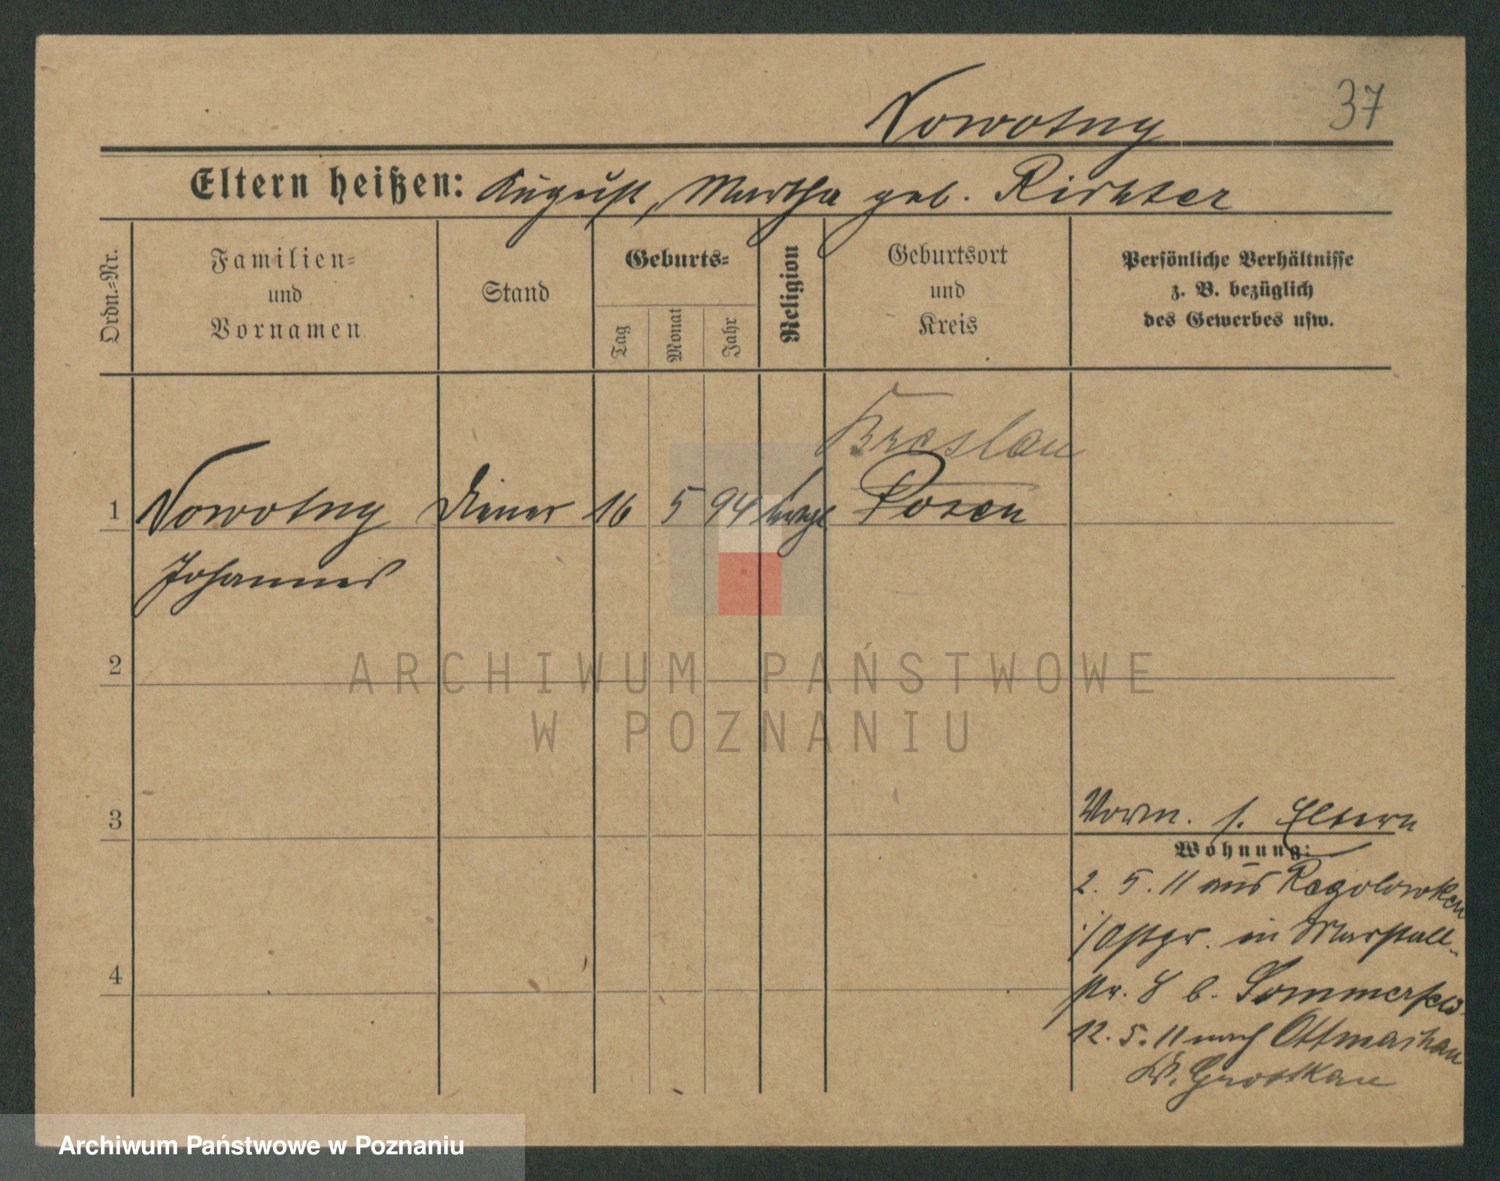 37
Nowotny
Eltern heißen: August, Martha geb. Richter
Ordn.-Nr.
Familien-
und
Vornamen
Stand
Geburts-
Tag
Monat
Jahr
Religion
Geburtsort
und
Kreis
Persönliche Verhältnisse
z. B. bezüglich
des Gewerbes usw.
Breslau
1 Nowotny Diener 16 5 94 evgl Posen
Johannes
2
3
4
Vorm. s. Eltern
Wohnung:
2. 5. 11 aus Rogolowken
i/Ostpr. in Marstall-
str. 8 b. Sommerfeld
12. 5. 11 nach Ottmachau
Kr. Grottkau
ARCHIWUM PAŃSTWOWE
W POZNANIU
Archiwum Państwowe w Poznaniu